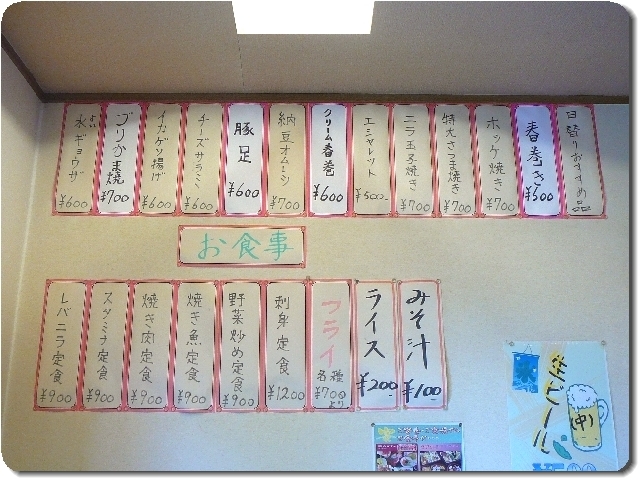 日替りおすすめ品
春巻き ¥500
ホッケ焼き ¥700
特大さつま焼き ¥700
ニラ玉子焼き ¥700
エシャレット ¥500-
クリーム春巻 ¥600
納豆オムレツ ¥700
豚足 ¥600
チーズサラミ ¥600
イカゲソ揚げ ¥600
ブリかま焼 ¥700
水ギョウザ ¥600
お食事
みそ汁 ¥100
ライス ¥200
フライ 各種 ¥700より
刺身定食 ¥1200
野菜炒め定食 ¥900
焼き魚定食 ¥900
焼き肉定食 ¥900
スタミナ定食 ¥900
レバニラ定食 ¥900
生ビール
(中)